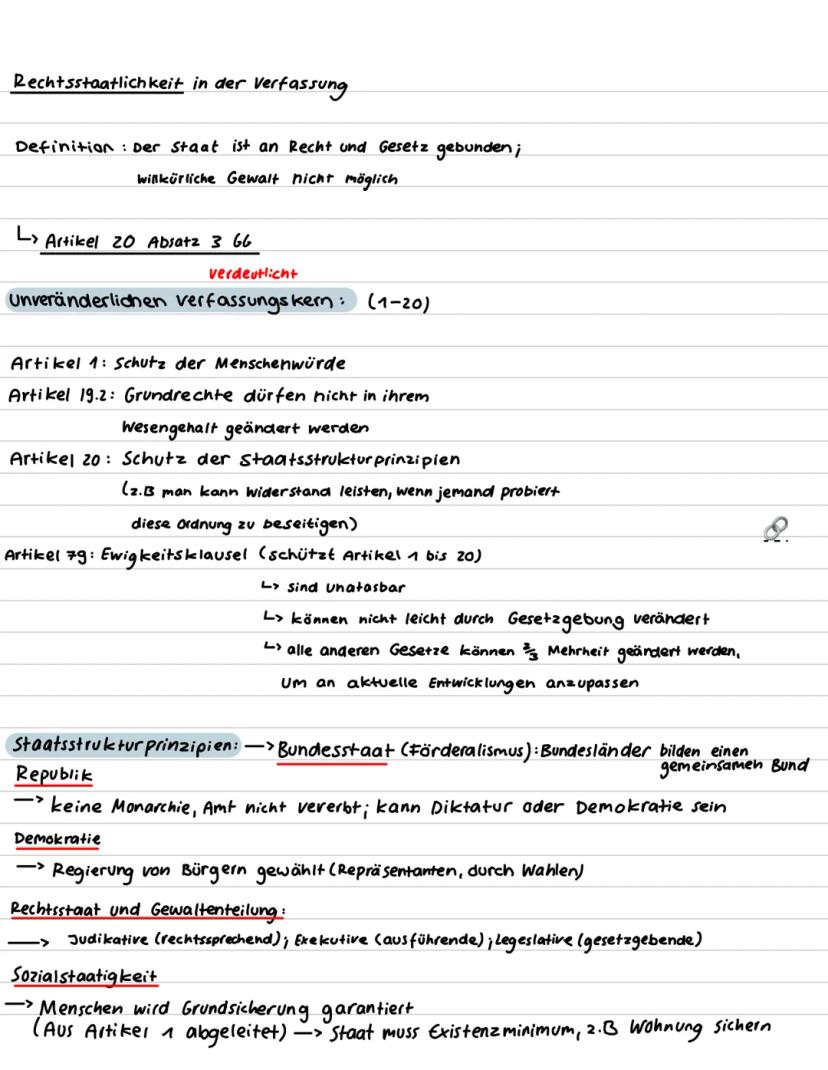 Rechtsstaatlichkeit in der Verfassung
Definition : Der Staat ist an Recht und Gesetz gebunden;
willkürliche Gewalt nicht möglich
↳ Artikel 20 Absatz 3 GG
verdeutlicht
Unveränderlichen Verfassungskern : (1-20)
Artikel 1: Schutz der Menschenwürde
Artikel 19.2: Grundrechte dürfen nicht in ihrem
Wesengehalt geändert werden
Artikel 20 : Schutz der Staatsstrukturprinzipien
(z.B man kann Widerstand leisten, wenn jemand probiert
diese Ordnung zu beseitigen)
Artikel 79: Ewigkeitsklausel (schützt Artikel 1 bis 20)
↳ sind unatasbar
↳ können nicht leicht durch Gesetzgebung verändert
↳ alle anderen Gesetze können 2/3 Mehrheit geändert werden,
um an aktuelle Entwicklungen anzupassen
Staatsstrukturprinzipien: → Bundesstaat (Förderalismus): Bundesländer bilden einen
gemeinsamen Bund
Republik
→ keine Monarchie, Amt nicht vererbt; kann Diktatur oder Demokratie sein
Demokratie
→ Regierung von Bürgern gewählt (Repräsentanten, durch Wahlen)
Rechtsstaat und Gewaltenteilung:
→ Judikative (rechtssprechend); Exekutive (ausführende); Legeslative (gesetzgebende)
Sozialstaatigkeit
→ Menschen wird Grundsicherung garantiert
(Aus Artikel 1 abgeleitet) → Staat muss Existenzminimum, z.B Wohnung sichern